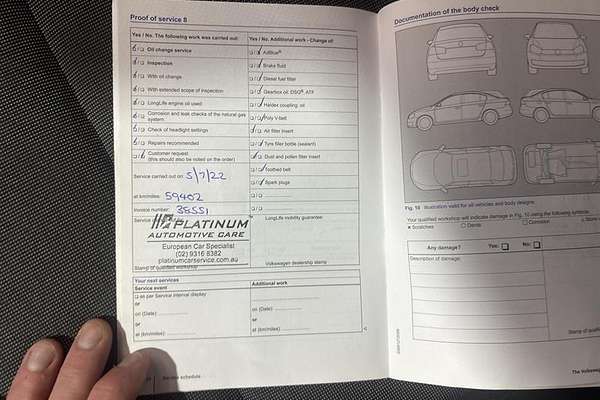 Proof of service 8
Yes / No. The following work was carried out:
Oil change service
Inspection
With oil change
With extended scope of inspection
LongLife engine oil used
Corrosion and leak checks of the natural gas
system
Check of headlight settings
Repairs recommended
Customer request
(this should also be noted on the order)
Service carried out on: 5/7/22
at km/miles: 59402
Invoice number: 38551
PLATINUM
AUTOMOTIVE CARE
European Car Specialist
(02) 9316 8382
platinumcarservice.com.au
Stamp of qualified workshop
Yes / No. Additional work - Change of:
AdBlue®
Brake fluid
Diesel fuel filter
Gearbox oil: DSG®, ATF
Haldex coupling: oil
Poly V-belt
Air filter insert
Tyre filler bottle (sealant)
Dust and pollen filter insert
Toothed belt
Spark plugs
LongLife mobility guarantee
Volkswagen dealership stamp
Your next services
Service event
as per Service interval display
or
on (Date):
or
at (km/miles):
Additional work
on (Date):
or
at (km/miles):
Service schedule
Documentation of the body check
Fig. 10 Illustration valid for all vehicles and body designs.
Your qualified workshop will indicate damage in Fig. 10 using the following symbols:
× Scratches
Dents
Corrosion
Any damage? Yes: No:
Description of damage:
Stamp of
The Volkswag